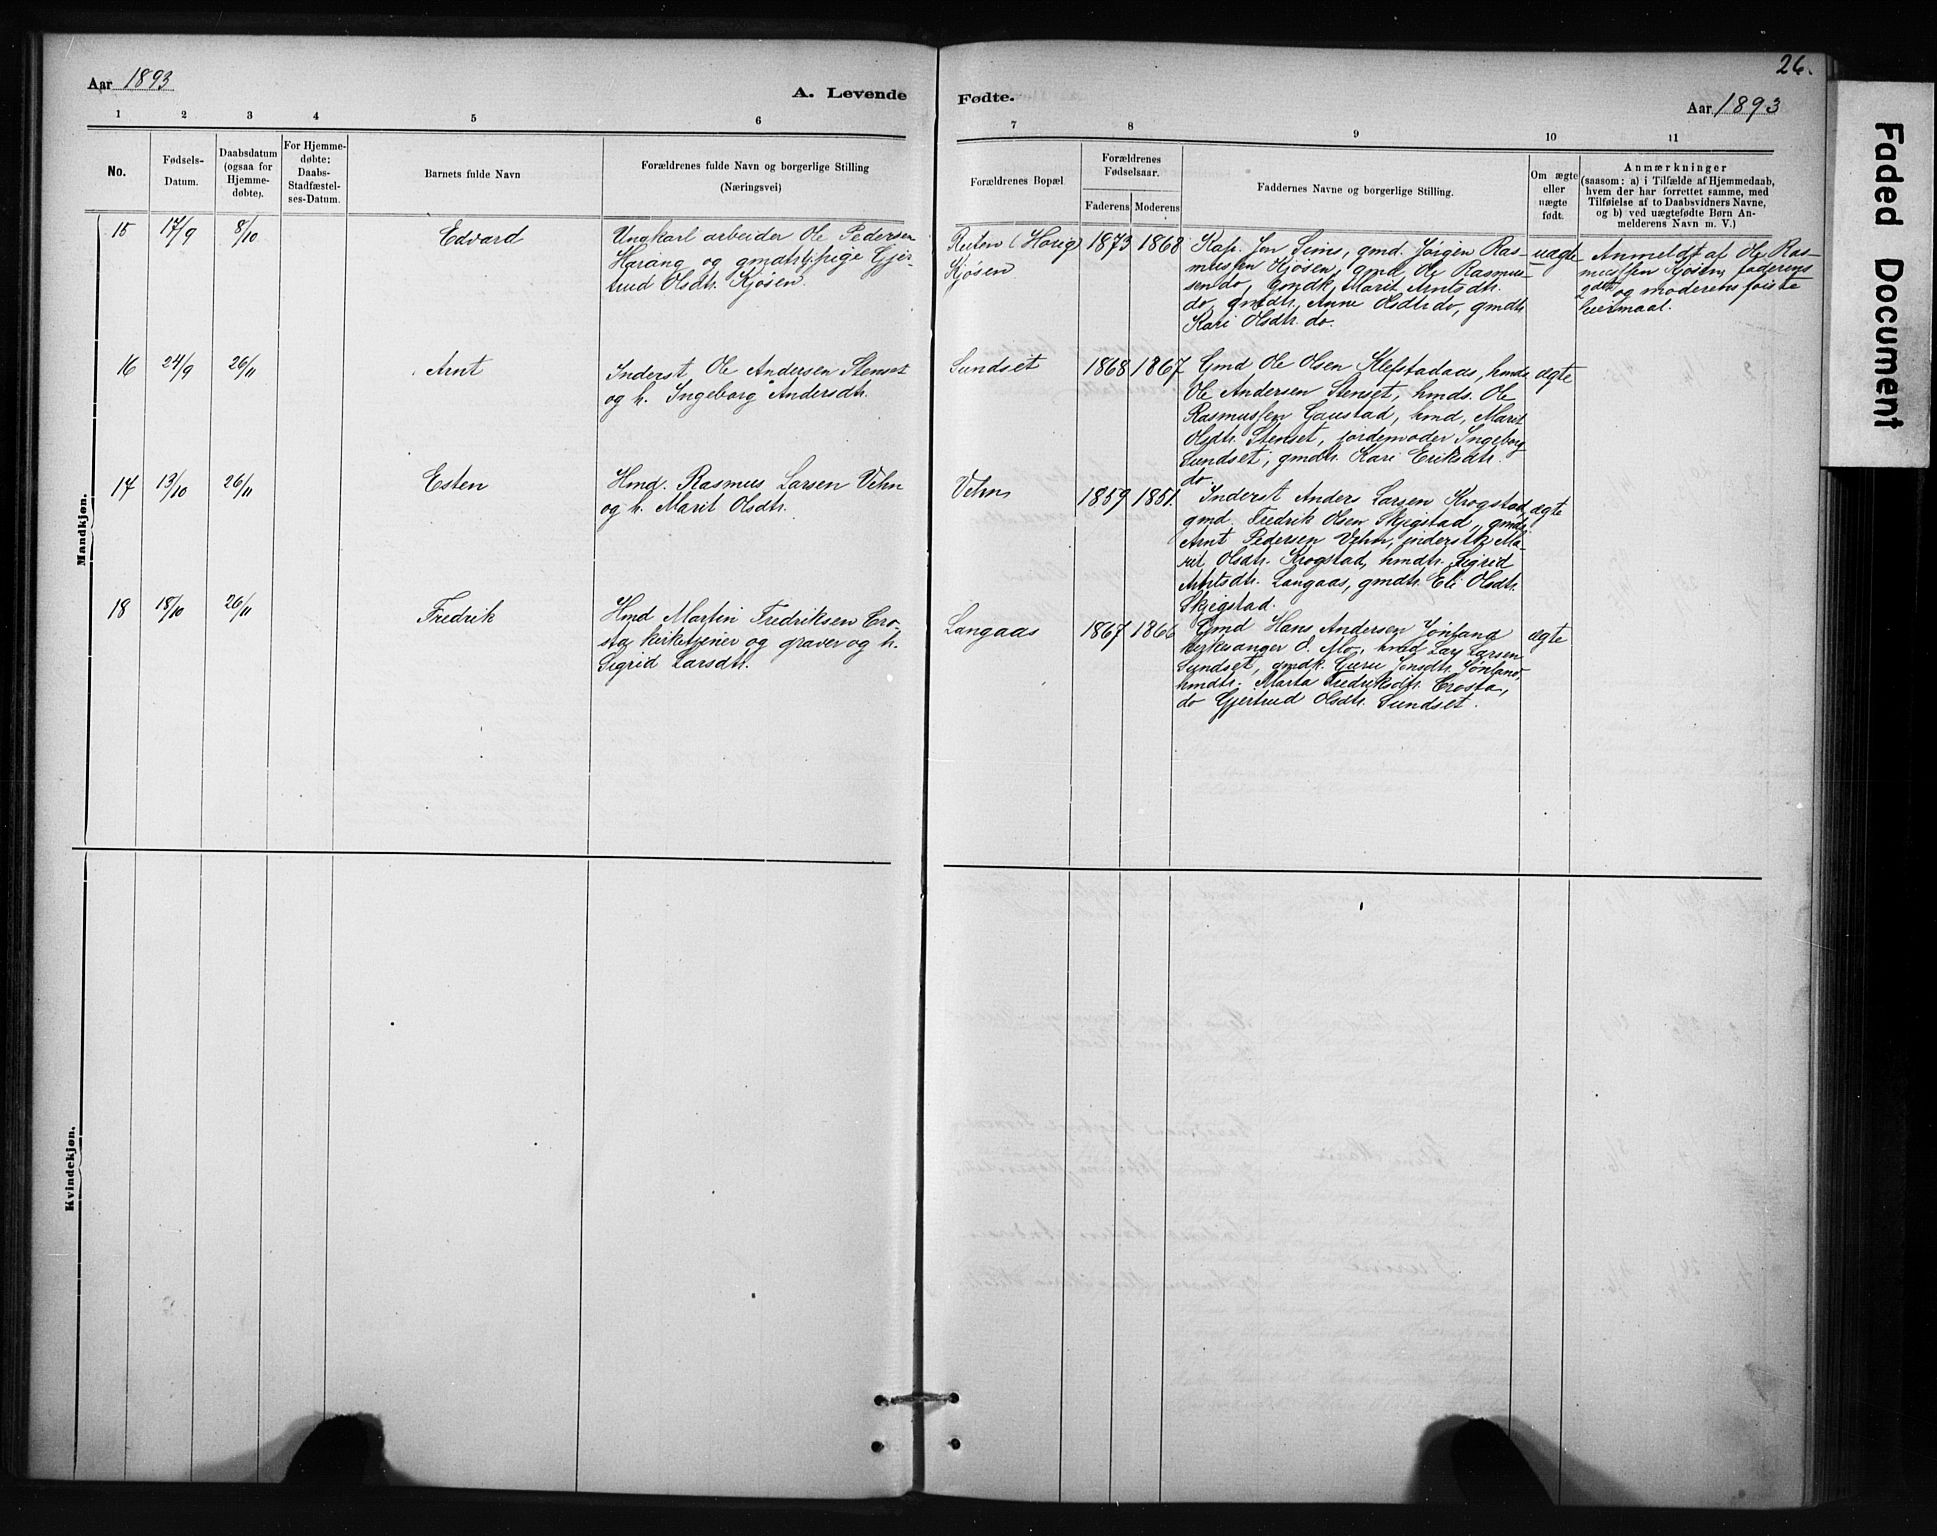 Aar 1893
A. Levende
Fødte.
26.
Aar 1893
1 2 3 4 5 6 7 8 9 10 11
No.
Fødsels-
Datum.
Daabsdatum
(ogsaa for
Hjemme-
døbte).
For Hjemme-
døbte:
Daabs-
Stadfæstel-
ses-Datum.
Barnets fulde Navn
Forældrenes fulde Navn og borgerlige Stilling
(Næringsvei)
Forældrenes Bopæl.
Forældrenes
Fødselsaar.
Faderens Moderens
Faddernes Navne og borgerlige Stilling.
Om ægte
eller
uægte
født.
Anmærkninger
(saasom: a) i Tilfælde af Hjemmedaab,
hvem der har forrettet samme, med
Tilføielse af to Daabsvidners Navne,
og b) ved uægtefødte Børn An-
melderens Navn m. V.)
Mandkjøn.
15 17/9 8/10 Edvard
Ungkarl arbeider Ole Pedersen
Harang og gmdttr pige Gjer-
trud Olsdtr. Kjøsen
Reiton (Horig)
Kjøsen
1873 1868
Kap. Jon Seins, gmd. Jørgen Ras-
mussen Kjøsen, gmd. Ole Rasmus-
sen do, gmdk. Marit Arntsdtr.
do, gmdtr. Anne Olsdtr do, gmdtr
Kari Olsdtr. do.
uægte
Anmeldt af Ole Ras-
mussen Kjøsen, faderens
2det og moderens første
leiermaal.
16 24/9 26/11 Arnt
Inderst Ole Andersen Stenset
og h. Ingeborg Andersdtr.
Sundset
1868 1867
Gmd Ole Olsen Klefstadaas, hmds
Ole Andersen Stenset, hmds. Ole
Rasmussen Gaustad, hmd, Marit
Olsdtr. Stenset, jordemoder Ingeborg
Sundset, gmdtr. Kari Eriksdtr.
do
ægte
17 13/10 26/11 Esten
Hmd. Rasmus Larsen Vehn
og h. Marit Olsdtr.
Vehn
1859 1851.
Inderst Anders Larsen Krogstad,
gmd. Fredrik Olsen Skjegstad, gmds
Arnt Pedersen Vehn, inderstk Ma-
rit Olsdtr. Krogstad, hmdtr. Sigrid
Arntsdtr. Langaas, gmdtr. Eli Olsdtr.
Skjegstad.
ægte
18 18/10 26/11 Fredrik
Hmd Martin Fredriksen Cro-
sta kirketjener og graver og h.
Sigrid Larsdtr.
Langaas
1867 1866
Gmd Hans Andersen Jønland
kirkesanger O. Mo, hmd Lars Larsen
Sundset, gmdk. Guru Jonsdtr. Jønland,
hmdtr. Marta Fredriksdtr. Crosta,
do Gjertrud Olsdtr. Sundset.
ægte
Kvindekjøn.
Faded Document